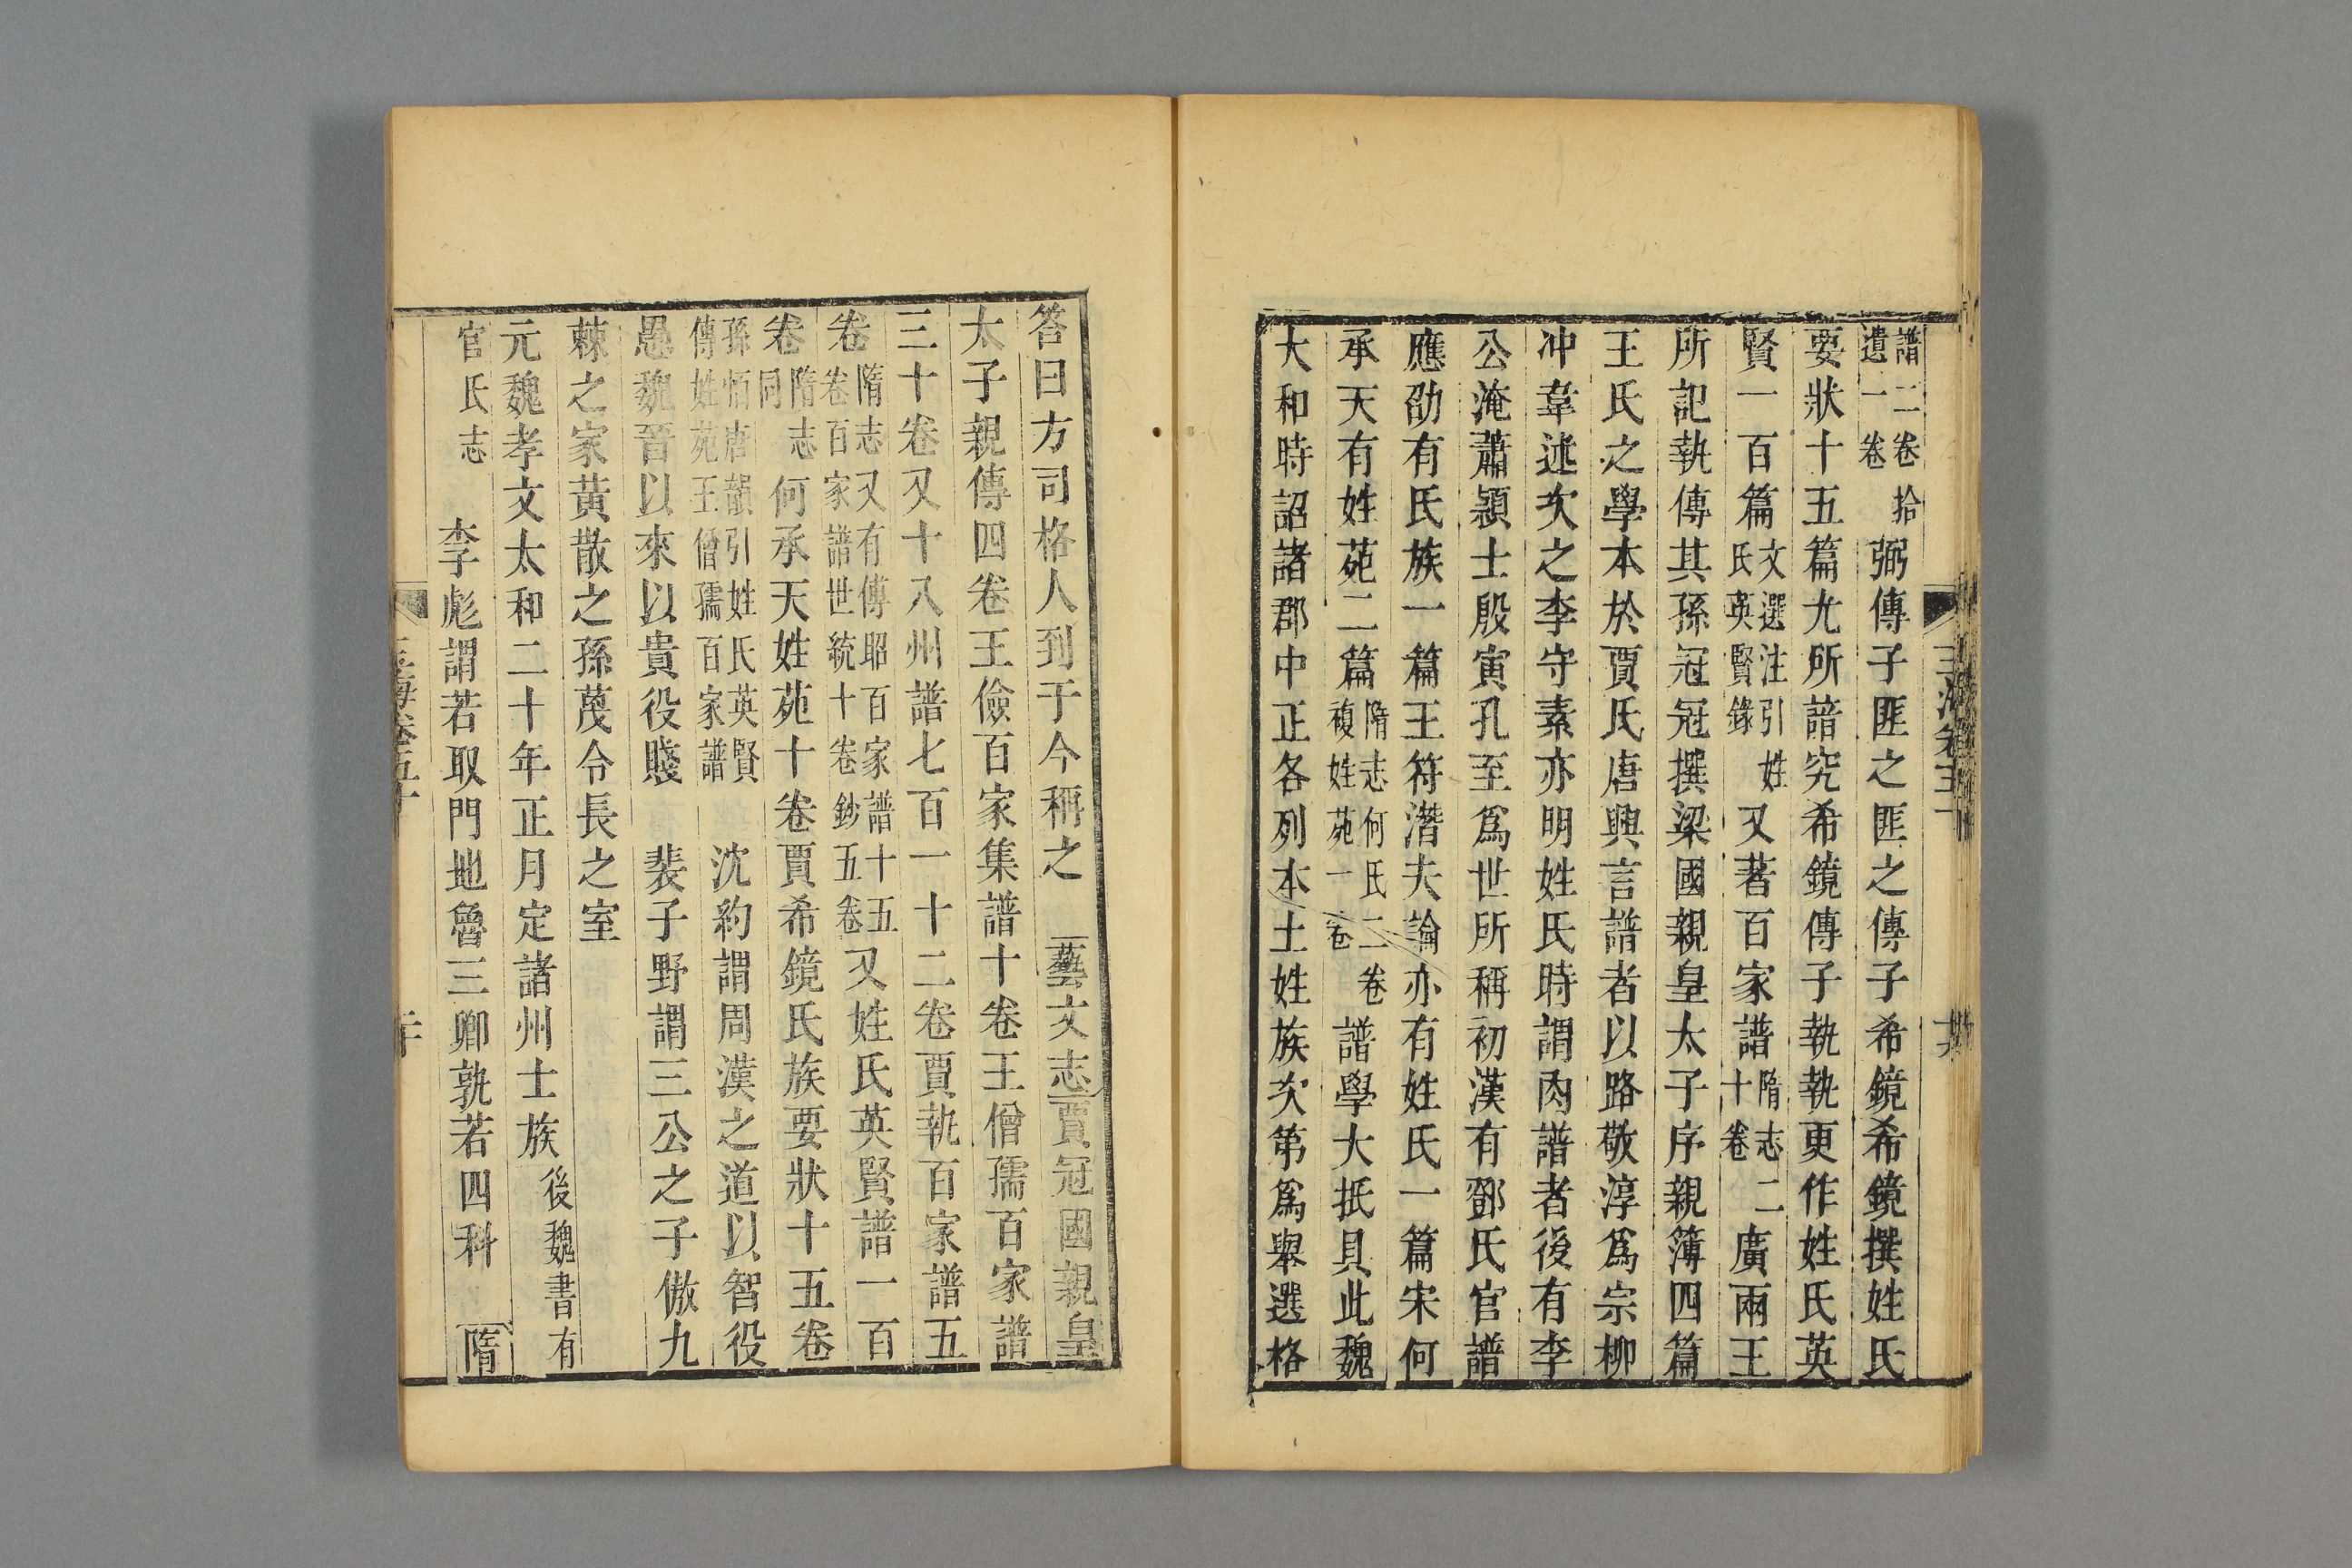 譜二卷拾遺一卷弼傳子匪之匪之傳子希鏡希鏡撰姓氏
要狀十五篇尤所諳究希鏡傳子執執更作姓氏英
賢一百篇文選注引姓氏英賢錄又著百家譜隋志二十卷廣兩王
所記執傳其孫冠冠撰梁國親皇太子序親簿四篇
王氏之學本於賈氏唐興言譜者以路敬淳爲宗柳
冲韋述次之李守素亦明姓氏時謂肉譜者後有李
公淹蕭穎士殷寅孔至爲世所稱初漢有鄧氏官譜
應劭有氏族一篇王符潛夫論亦有姓氏一篇宋何
承天有姓苑二篇隋志何氏二卷複姓苑一卷譜學大抵具此魏
大和時詔諸郡中正各列本土姓族次第爲舉選格
答曰方司格人到于今稱之 藝文志賈冠國親皇
太子親傳四卷王儉百家集譜十卷王僧孺百家譜
三十卷又十八州譜七百一十二卷賈執百家譜五
卷隋志又有傳昭百家譜十五卷百家譜世統十卷鈔五卷又姓氏英賢譜一百
卷隋志同何承天姓苑十卷賈希鏡氏族要狀十五卷
孫愐唐韻引姓氏英賢傳姓苑王僧孺百家譜 沈約謂周漢之道以智役
愚魏晉以來以貴役賤 裴子野謂三公之子傲九
棘之家黃散之孫蔑令長之室
元魏孝文太和二十年正月定諸州士族後魏書有
官氏志 李彪謂若取門地魯三卿孰若四科 隋